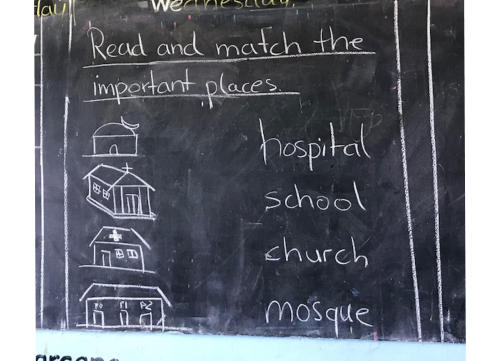 day
Wednesday.
Read and match the
important places
hospital
school
church
mosque
P0 P1 P2